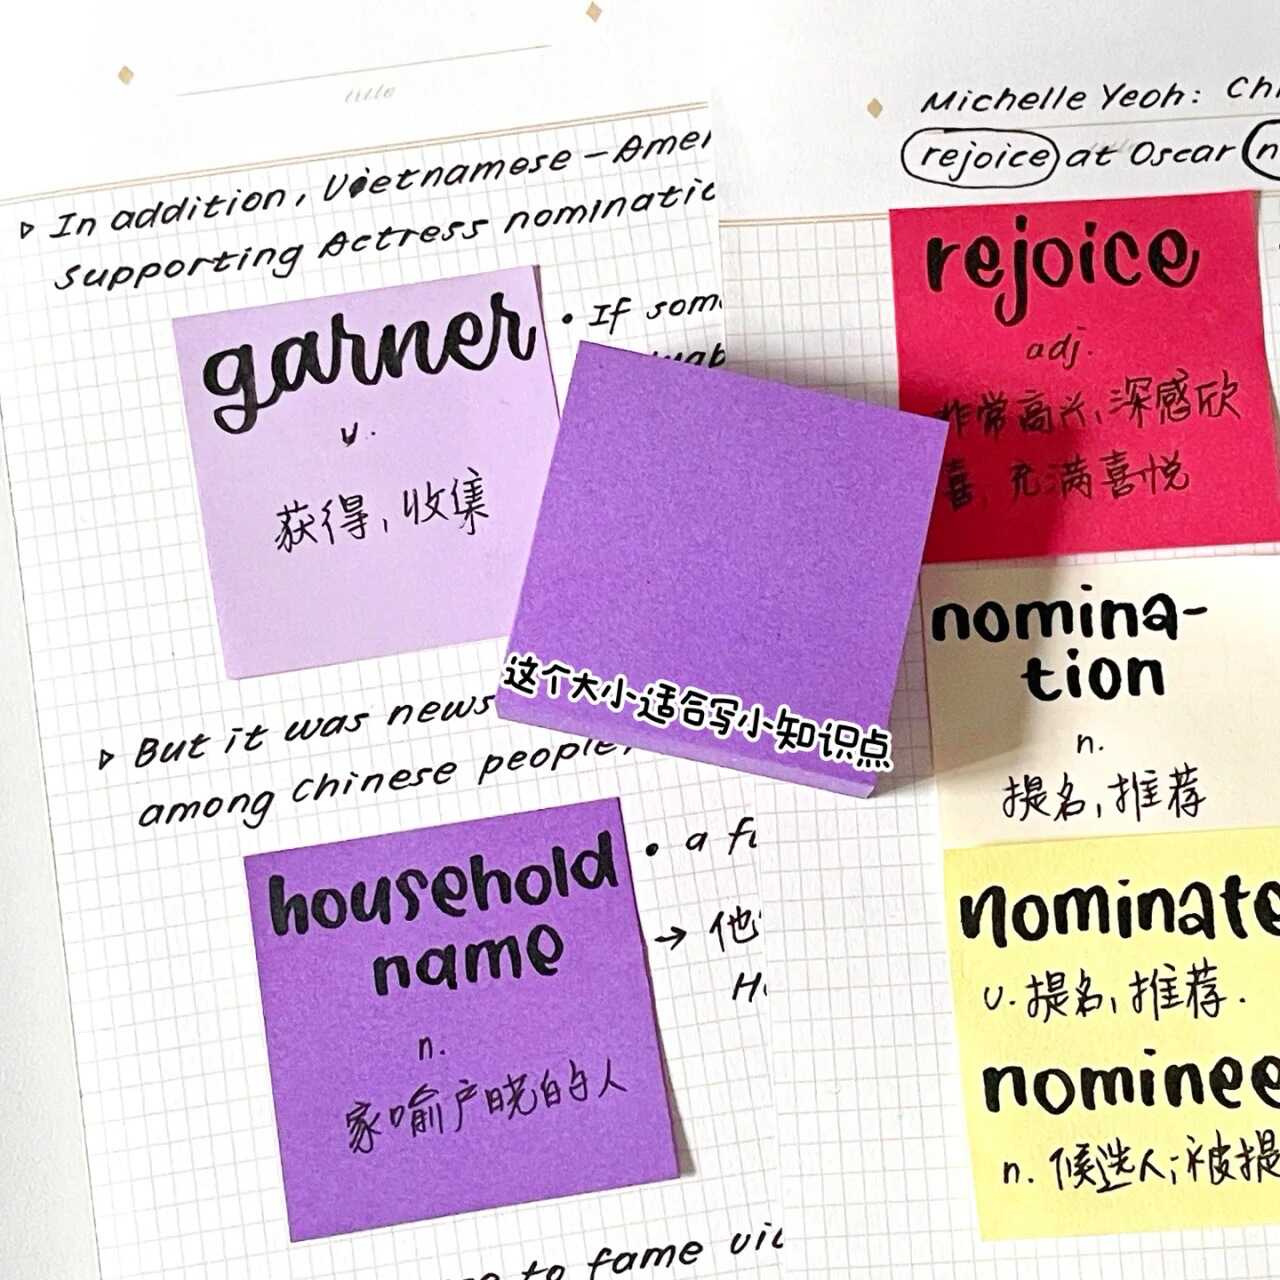 title
▷ In addition, Vietnamese-Amer
supporting Actress nominatio
garner
v.
获得,收集
• If some
household
name
n.
家喻户晓的人
▷ But it was news
among Chinese people,
• a f
→ 他
H
to fame vi
这个大小适合写小知识点
Michelle Yeoh: Chi
rejoice at Oscar n
rejoice
adj.
非常高兴,深感欣
喜,充满喜悦
nomina-
tion
n.
提名,推荐
nominate
v. 提名,推荐.
nominee
n. 候选人;被提